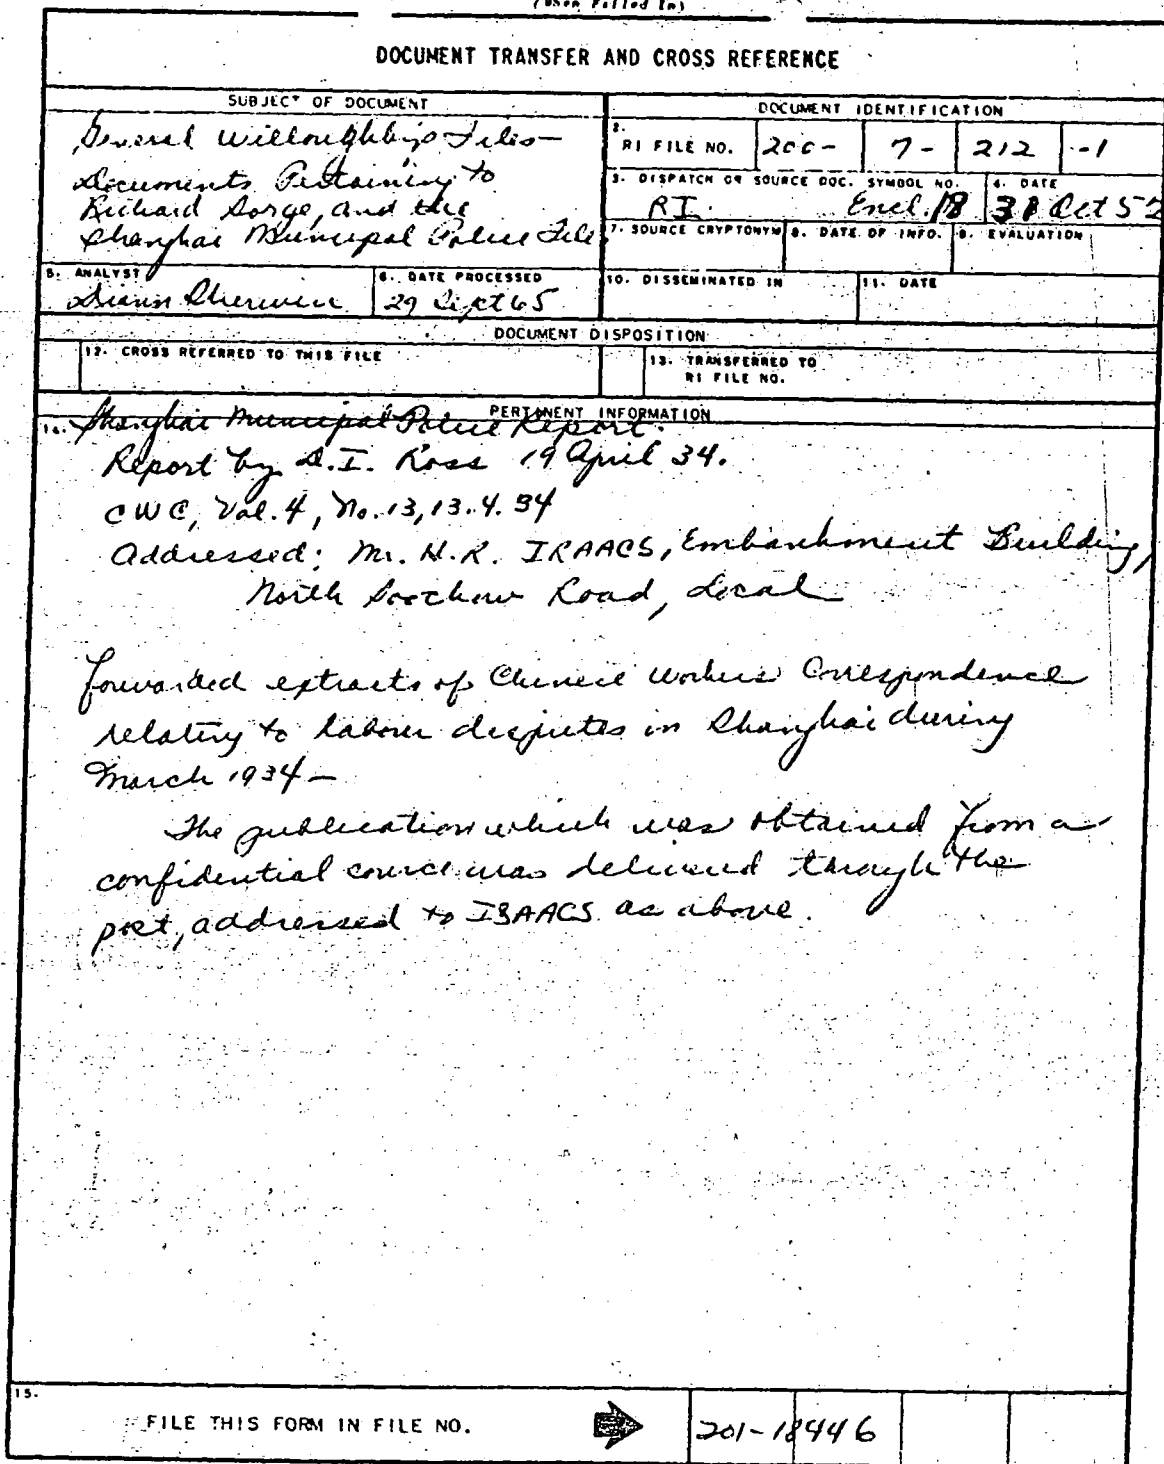 (When Filled In)
DOCUMENT TRANSFER AND CROSS REFERENCE
SUBJECT OF DOCUMENT
General Willoughby's Files—
Documents Pertaining to
Richard Sorge, and the
Shanghai Municipal Police File
DOCUMENT IDENTIFICATION
2. RI FILE NO. 200- 7- 212 -1
3. DISPATCH OR SOURCE DOC. SYMBOL NO.
RI Encl. 18
4. DATE
31 Oct 52
7. SOURCE CRYPTONYM
8. DATE OF INFO.
9. EVALUATION
5. ANALYST
6. DATE PROCESSED
29 Sept 65
10. DISSEMINATED IN
11. DATE
DOCUMENT DISPOSITION
12. CROSS REFERRED TO THIS FILE
13. TRANSFERRED TO
RI FILE NO.
PERTINENT INFORMATION
14. Shanghai Municipal Police Report.
Report by D.I. Ross 19 April 34.
CWC, Vol. 4, No. 13, 13.4.34
Addressed: Mr. H.R. ISAACS, Embankment Building,
North Soochow Road, Local
forwarded extracts of Chinese Workers Correspondence
relating to labour disputes in Shanghai during
March 1934—
The publication which was obtained from a
confidential source was delivered through the
post, addressed to ISAACS as above.
15.
FILE THIS FORM IN FILE NO.
201-18446